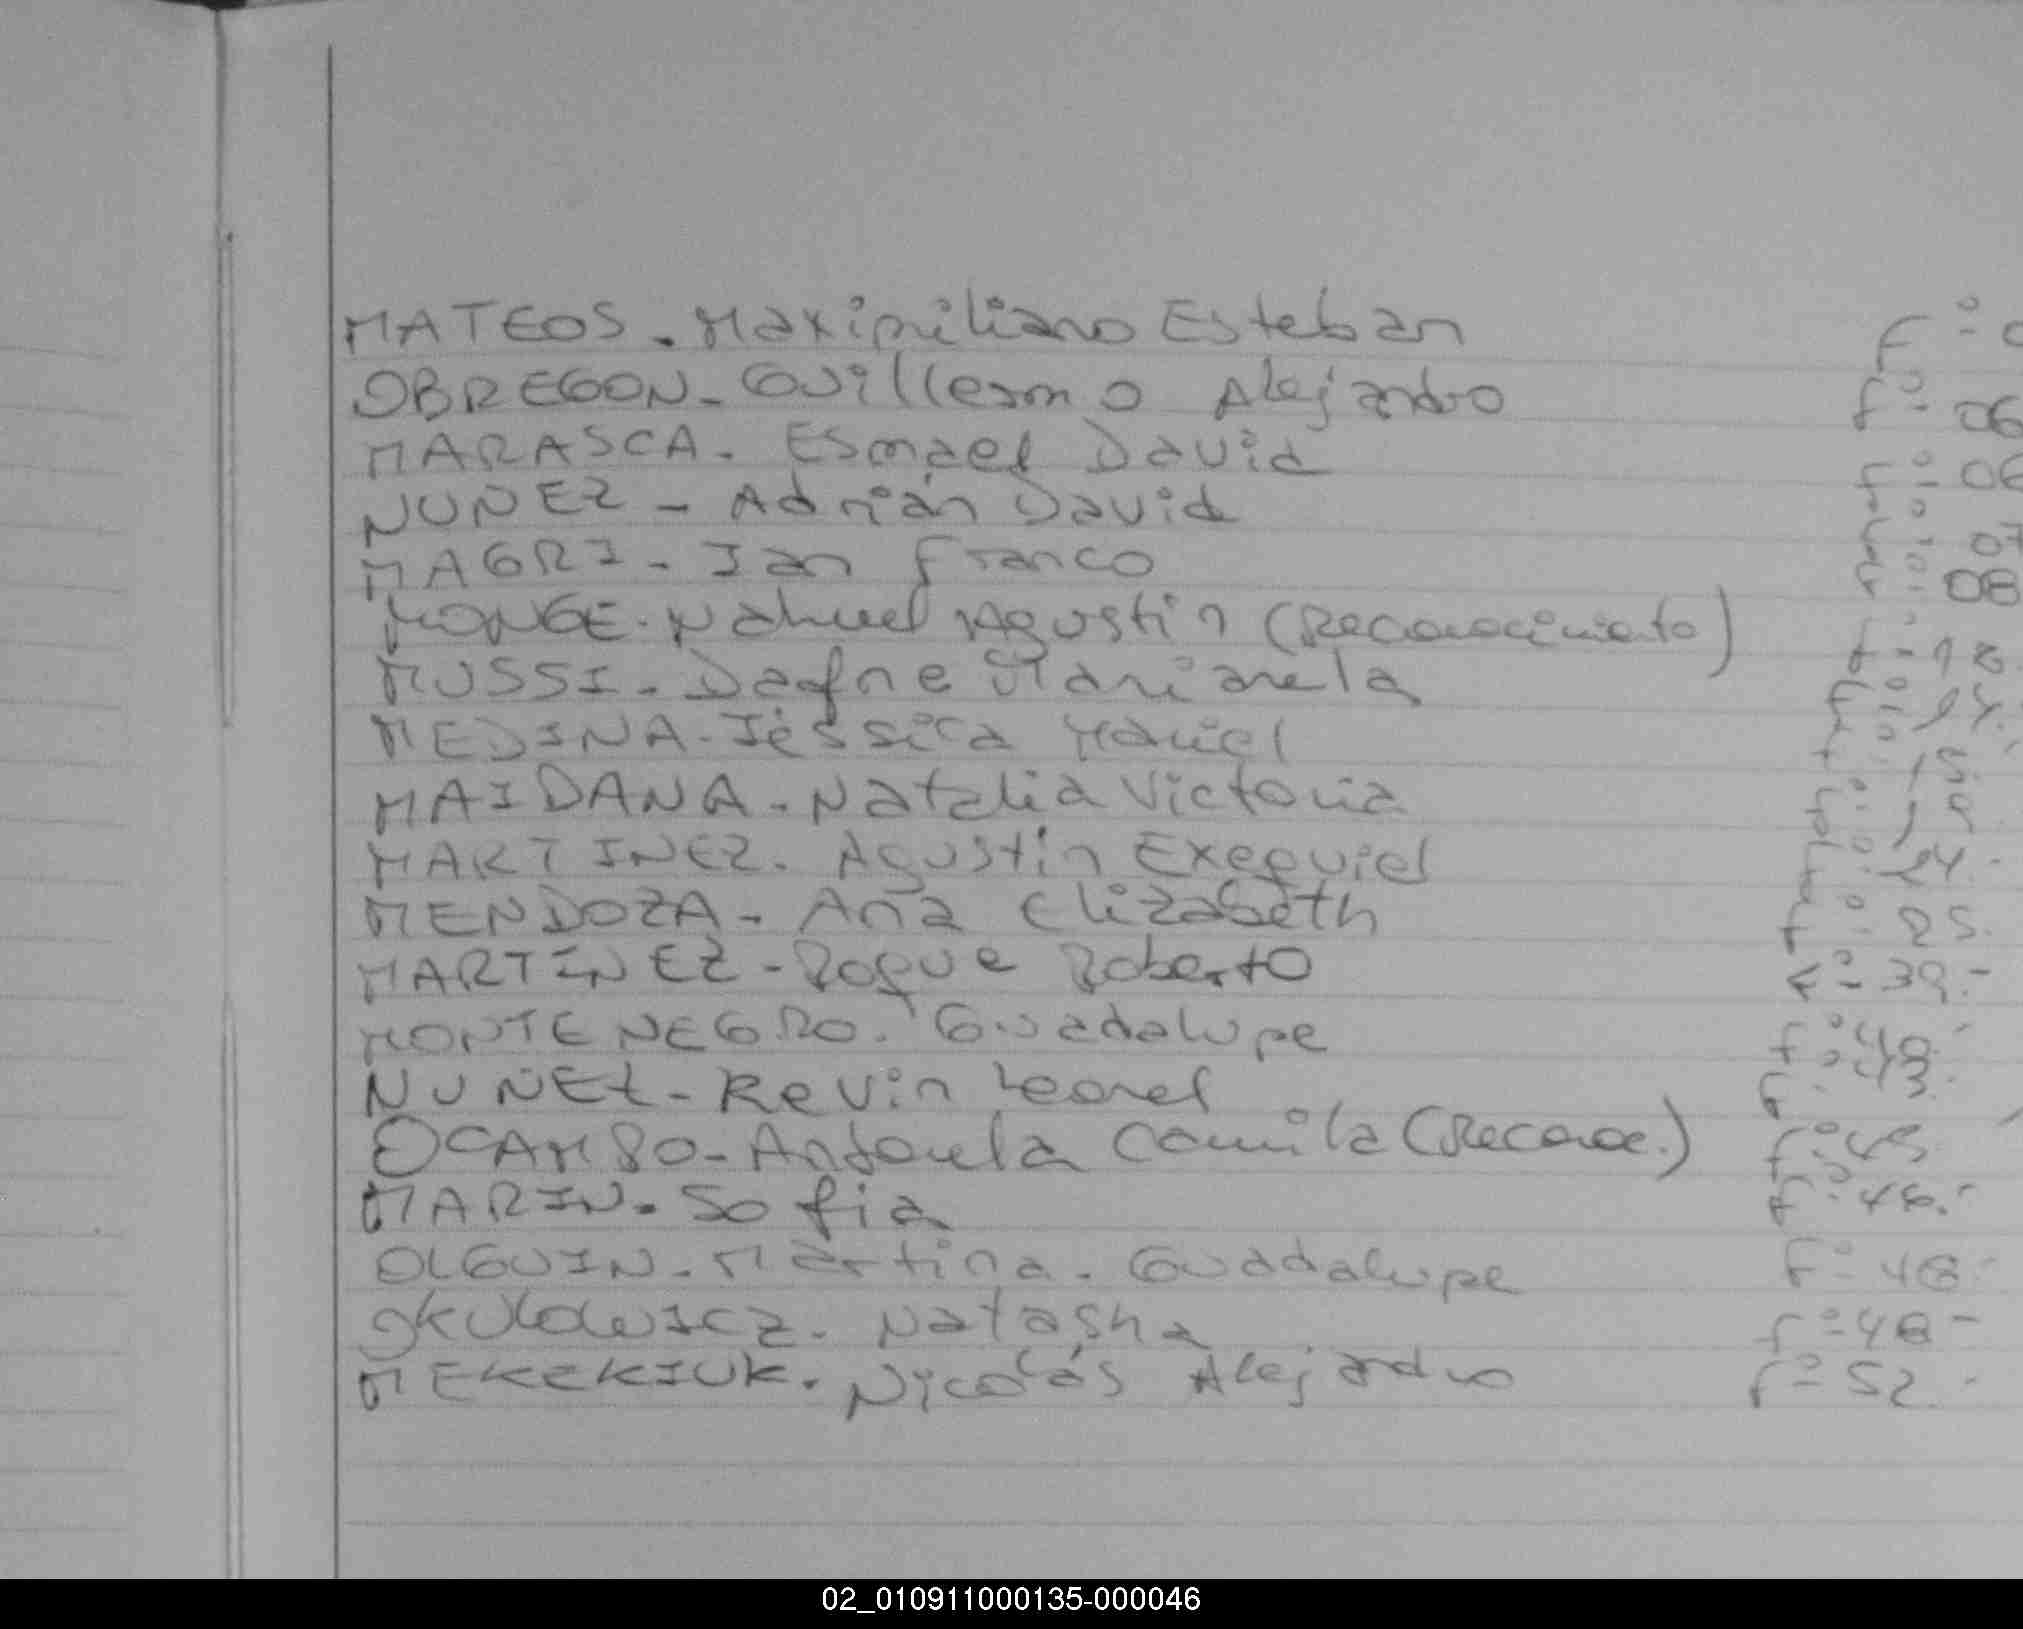 MATEOS. Maximiliano Esteban f°- 0
OBREGON- Guillermo Alejandro f°- 06
MARASCA. Esmael David f°- 06
NUÑEZ - Adrián David f°- 07
MAGRI- Ian Franco f°- 08
MONGE. Nahuel Agustin (Reconocimiento) f°-
MUSSI. Dafne Marianela f°-
MEDINA- Jéssica Mariel f°- 15.
MAIDANA. Natalia Victoria f°- 19
MARTINEZ. Agustin Exequiel f°- 24.
MENDOZA- Ana Elizabeth f°- 25.
MARTINEZ - Roque Roberto f°- 39.-
MONTENEGRO. Guadalupe f°- 40.
NUÑEZ- Kevin Leonel f°- 43.
OCAMPO- Antonela Camila (Reconoc.) f°- 45
MARIN. Sofia f°- 46.-
OLGUIN. Martina. Guadalupe f°- 48-
OKULOWICZ. Natasha f°- 48-
MEKEKIUK. Nicolás Alejandro f°- 52.
02_010911000135-000046